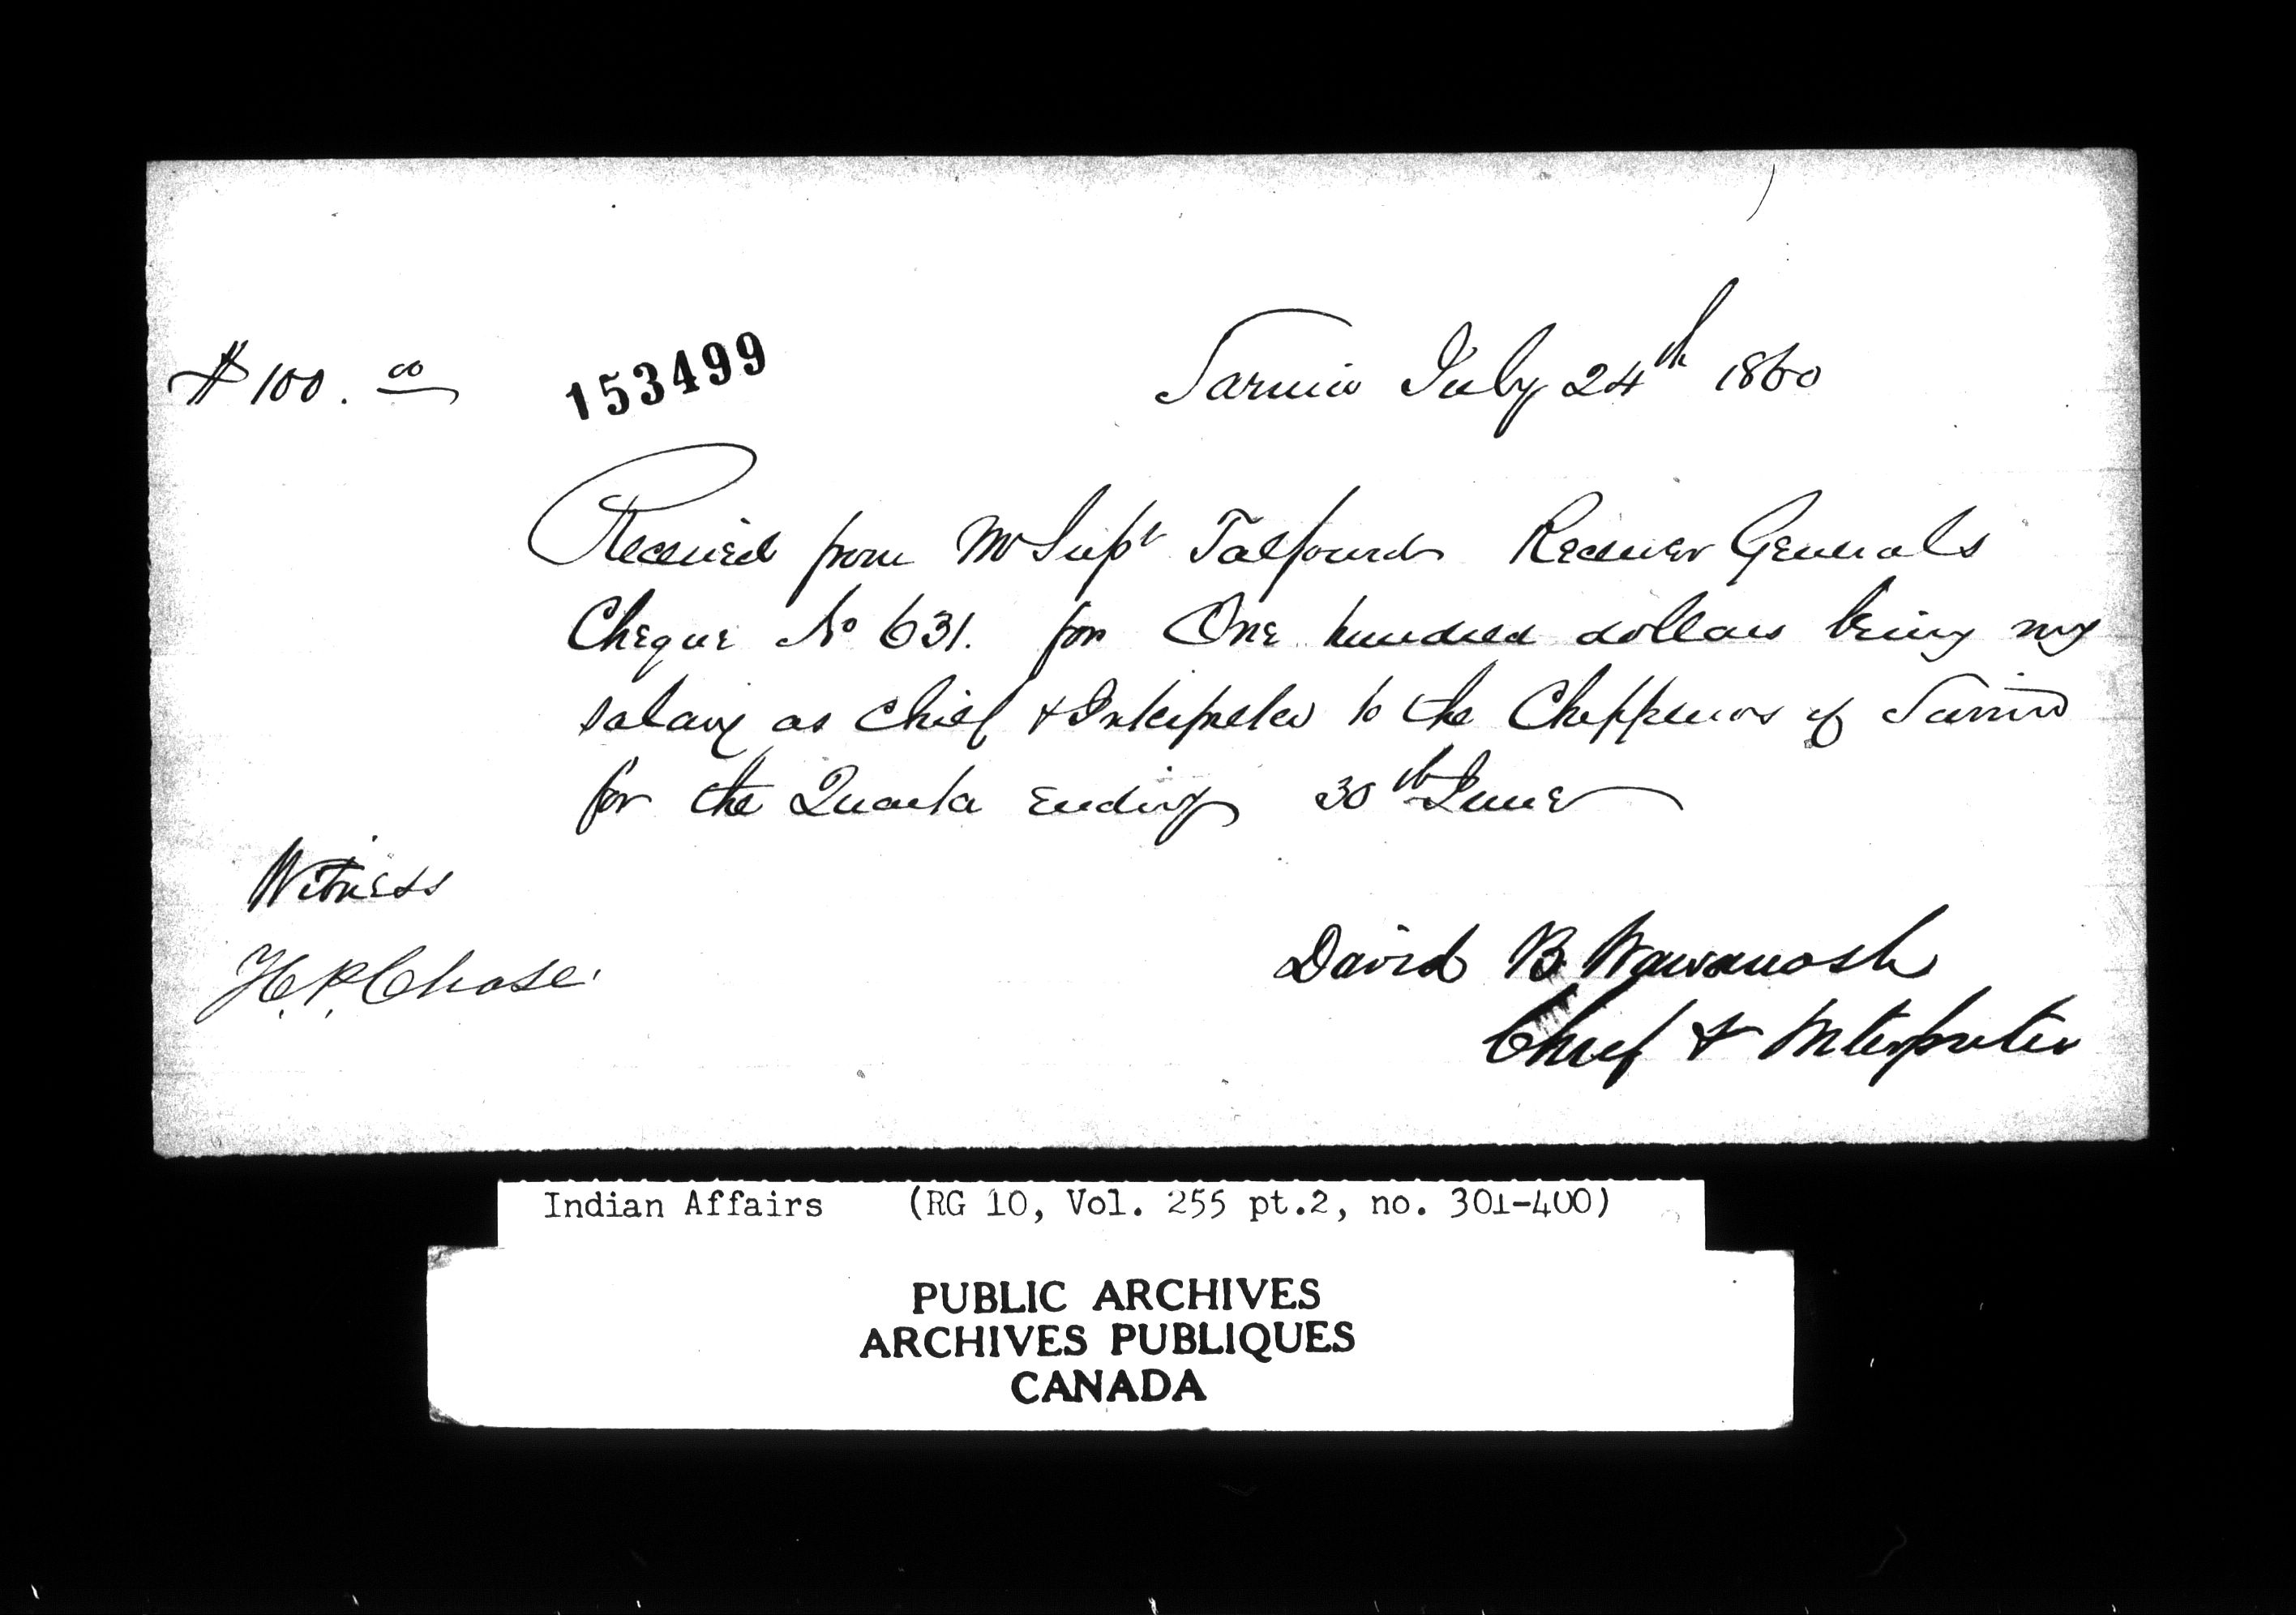 $ 100. 00 153499 Sarnia July 24th 1860
Received from Mr Supt Talfourd Receiver Generals
Cheque No 631. for One hundred dollars being my
salary as Chief & Interpreter to the Chippewas of Sarnia
for the Quarter Ending 30th June
Witness
H. P. Chase.
David B. Wawanosh
Chief & Interpreter
Indian Affairs (RG 10, Vol. 255 pt.2, no. 301-400)
PUBLIC ARCHIVES
ARCHIVES PUBLIQUES
CANADA